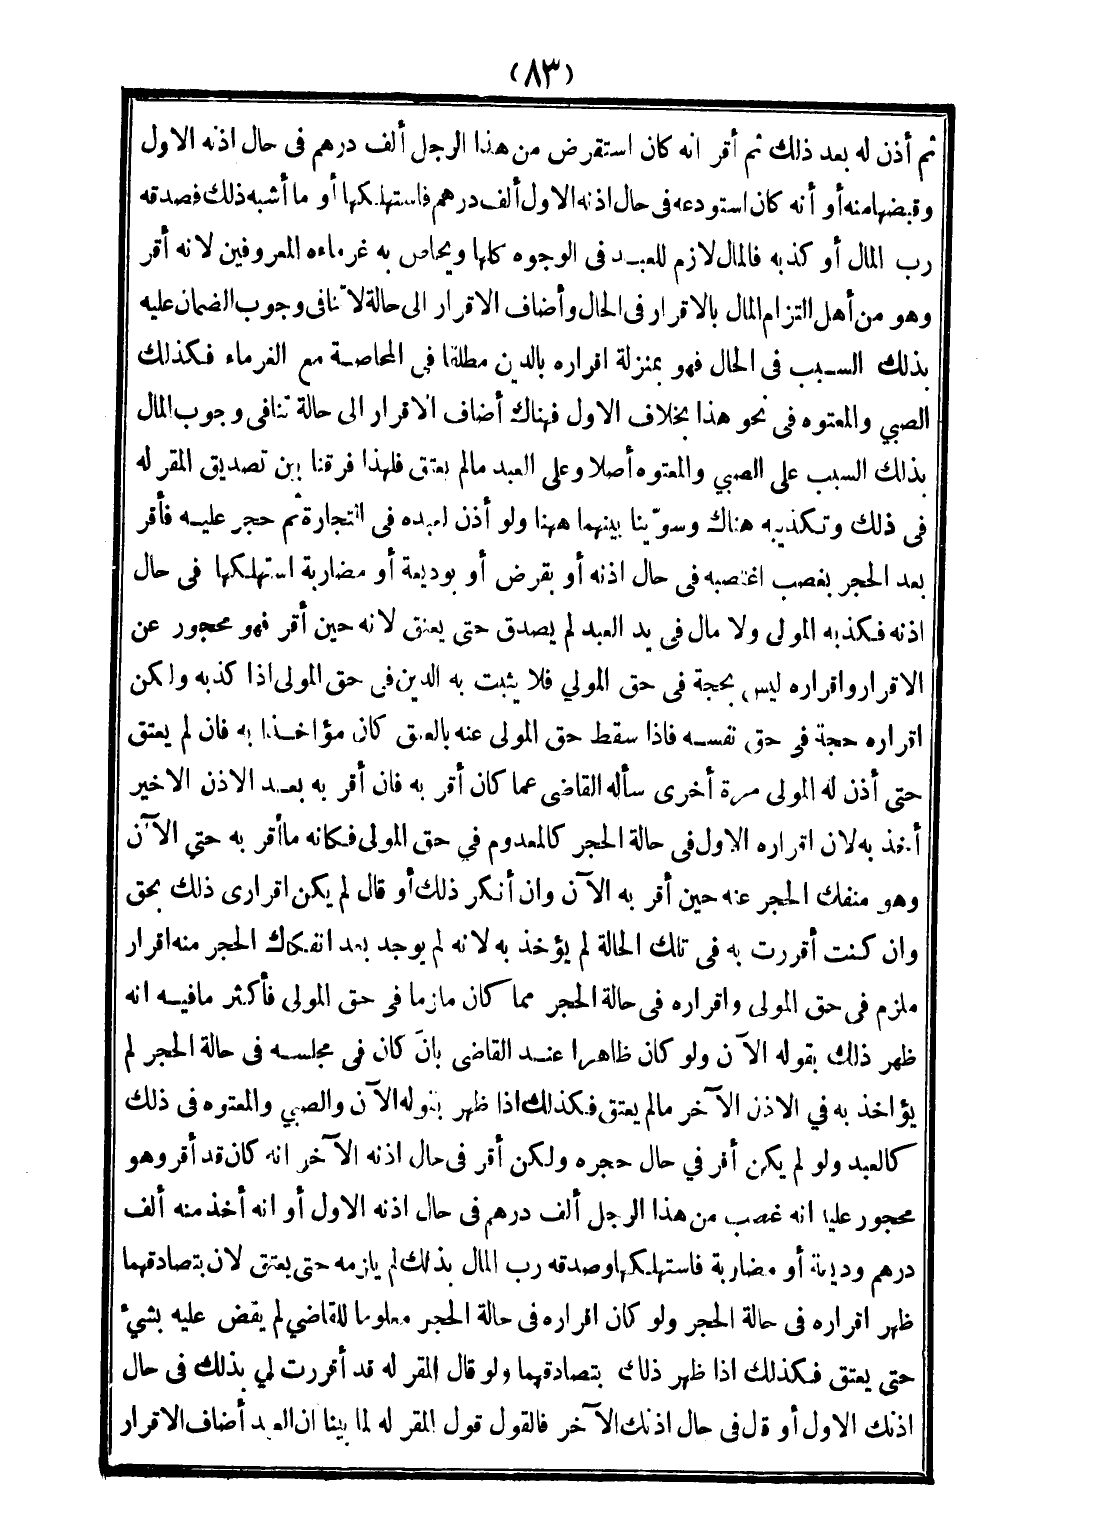 (٨٣)
ثم أذن له بعد ذلك ثم أقر انه كان استقرض من هذا الرجل ألف درهم فى حال اذنه الاول
وقبضها منه أو أنه كان استودعه فى حال اذنه الاول ألف درهم فاستهلكها أو ما أشبه ذلك فصدقه
رب المال أو كذبه فالمال لازم للعبد فى الوجوه كلها ويحاص به غرماءه المعروفين لانه أقر
وهو من أهل التزام المال بالاقرار فى الحال وأضاف الاقرار الى حالة لا تنافى وجوب الضمان عليه
بذلك السبب فى الحال فهو بمنزلة اقراره بالدين مطلقا فى المحاصة مع الغرماء فكذلك
الصبي والمعتوه فى نحو هذا بخلاف الاول فهناك أضاف الاقرار الى حالة تنافى وجوب المال
بذلك السبب على الصبي والمعتوه أصلا وعلى العبد مالم يعتق فلهذا فرقنا بين تصديق المقر له
فى ذلك وتكذيبه هناك وسوّينا بينهما ههنا ولو أذن لعبده فى التجارة ثم حجر عليه فأقر
بعد الحجر بغصب اغتصبه فى حال اذنه أو بقرض أو بوديعة أو مضاربة استهلكها فى حال
اذنه فكذبه المولى ولا مال فى يد العبد لم يصدق حتى يعتق لانه حين أقر فهو محجور عن
الاقرار واقراره ليس بحجة فى حق المولي فلا يثبت به الدين فى حق المولى اذا كذبه ولكن
اقراره حجة فى حق نفسه فاذا سقط حق المولى عنه بالعتق كان مؤاخذا به فان لم يعتق
حتى أذن له المولى مرة أخرى سأله القاضى عما كان أقر به فان أقر به بعد الاذن الاخير
أخذ به لان اقراره الاول فى حالة الحجر كالمعدوم في حق المولى فكانه ما أقر به حتي الآن
وهو منفك الحجر عنه حين أقر به الآن وان أنكر ذلك أو قال لم يكن اقرارى ذلك بحق
وان كنت أقررت به فى تلك الحالة لم يؤخذ به لانه لم يوجد بعد انفكاك الحجر منه اقرار
ملزم فى حق المولى واقراره فى حالة الحجر مما كان مازما فى حق المولى فأكثر مافيه انه
ظهر ذلك بقوله الآن ولو كان ظاهرا عند القاضى بان كان فى مجلسه فى حالة الحجر لم
يؤاخذ به في الاذن الآخر مالم يعتق فكذلك اذا ظهر بقوله الآن والصبي والمعتوه فى ذلك
كالعبد ولو لم يكن أقر في حال حجره ولكن أقر فى حال اذنه الآخر انه كان قد أقر وهو
محجور عليه انه غصب من هذا الرجل ألف درهم فى حال اذنه الاول أو انه أخذ منه ألف
درهم وديعة أو مضاربة فاستهلكها وصدقه رب المال بذلك لم يلزمه حتى يعتق لان بتصادقهما
ظهر اقراره فى حالة الحجر ولو كان اقراره فى حالة الحجر معلوما للقاضي لم يقض عليه بشيء
حتى يعتق فكذلك اذا ظهر ذلك بتصادقهما ولو قال المقر له قد أقررت لي بذلك فى حال
اذنك الاول أو قال فى حال اذنك الآخر فالقول قول المقر له لما بينا ان العبد أضاف الاقرار